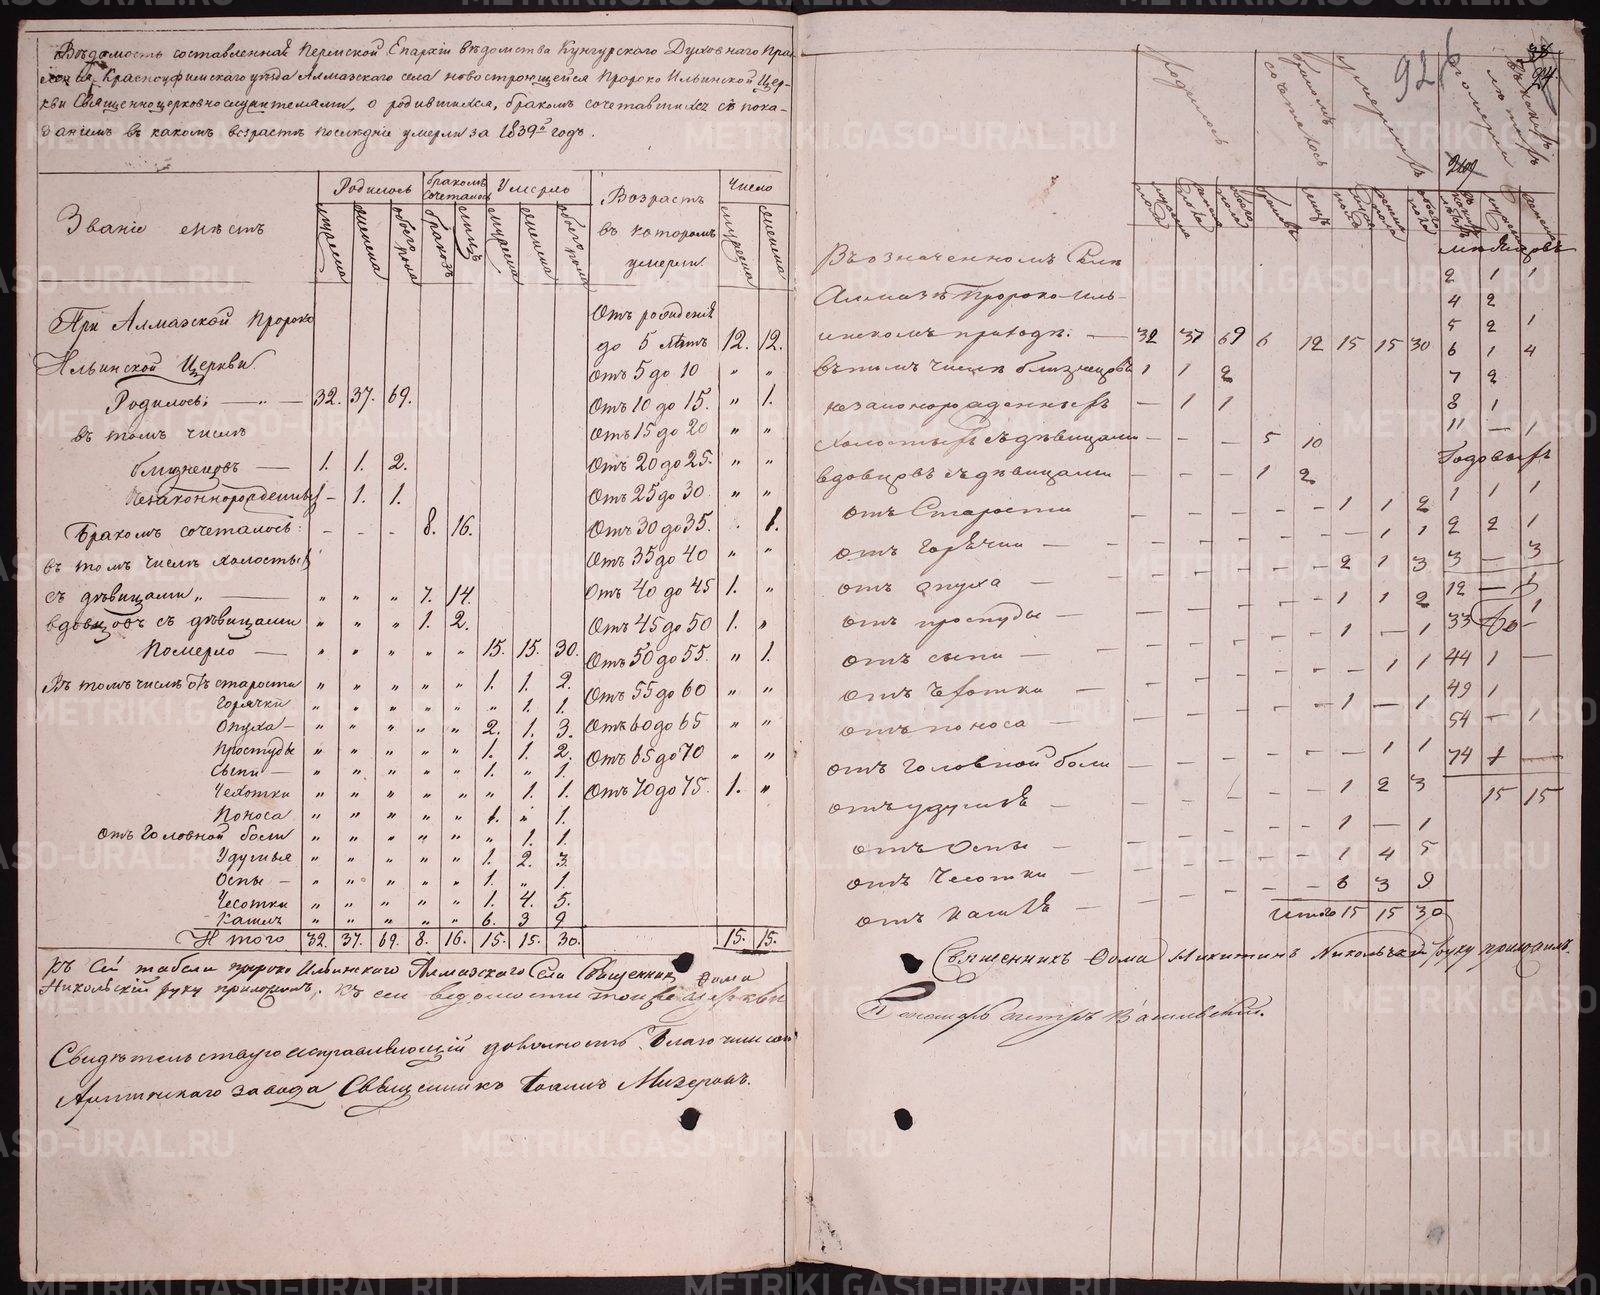 Вѣдомость составленная Пермской Епархіи вѣдомства Кунгурскаго Духовнаго Прав-
Красноуфимскаго уѣзда Алмазскаго села новостроющейся Пророко Ильинской Цер-
кви Священноцерковнослужителями, о родившихся, бракомъ сочетавшихся съ пока-
заніемъ въ какомъ возрастѣ послѣдніе умерли за 1839й годъ.
Званіе мѣстъ
Родилось
бракомъ сочеталось
Умерло
Возрастъ въ которомъ умерли.
Число
мужеска женска обоего пола браковъ лицъ мужеска женска обоего пола мужеска женска
При Алмазской Пророко
Ильинской Церкви.
Родилось: — „ — 32. 37. 69.
въ томъ числѣ
близнецовъ — 1. 1. 2.
Незаконнорожденныхъ - 1. 1.
Бракомъ сочеталось: - - - 8. 16.
въ томъ числѣ холостыхъ
съ дѣвицами „ — „ „ „ 7. 14.
вдовцовъ съ дѣвицами „ „ „ 1. 2.
Померло — „ „ „ „ „ 15. 15. 30.
Въ томъ числѣ отъ старости „ „ „ „ „ 1. 1. 2.
Горячки „ „ „ „ „ „ 1. 1.
Опуха — „ „ „ „ „ 2. 1. 3.
Простуды „ „ „ „ „ 1. 1. 2.
Сыпи — „ „ „ „ „ 1. „ 1.
Чехотки „ „ „ „ „ „ 1. 1.
Поноса „ „ „ „ „ 1. „ 1.
отъ Головной боли „ „ „ „ „ „ 1. 1.
Удушья „ „ „ „ „ 1. 2. 3.
Оспы — „ „ „ „ „ 1. „ 1.
Чесотки „ „ „ „ „ 1. 4. 5.
Кашля „ „ „ „ „ 6. 3 9.
Итого 32. 37. 69. 8. 16. 15. 15. 30. 15. 15.
Отъ рожденія
до 5 лѣтъ 12. 12.
Отъ 5 до 10 „ „
Отъ 10 до 15. „ 1.
Отъ 15 до 20 „ „
Отъ 20 до 25. „ „
Отъ 25 до 30 „ „
Отъ 30 до 35. . 1.
Отъ 35 до 40 „ „
Отъ 40 до 45 1. „
Отъ 45 до 50 1. „
Отъ 50 до 55. „ 1.
Отъ 55 до 60 „ „
Отъ 60 до 65 „ „
Отъ 65 до 70 „ „
Отъ 70 до 75. 1. „
Къ сей табели пророко Ильинскаго Алмазскаго Села Священникъ Фома
Никольскій руку приложилъ, къ сей ведомости тоя же церкви
Свидѣтельствую исправляющій должность Благочиннаго
Артинскаго завода Священникъ Іоаннъ Мизеровъ.
926
24.
родилось
бракомъ сочеталось
умерли
померли
Въ означенномъ Селе
Алмазѣ Пророко-Иль-
инскомъ приходѣ. — 32 37 69 6 12 15 15 30
въ томъ числѣ близнецовъ 1 1 2
незаконорожденныхъ — 1 1
холостыхъ съ дѣвицами — - - 5 10
вдовцовъ съ дѣвицами — - - 1 2
отъ Старости - - - - - 1 1 2
отъ Горячки — - - - - - — 1 1
отъ опуха — - - - - - 2 1 3
отъ простуды — - - - - - 1 1 2
отъ сыпи — - - - - - 1 — 1
отъ Чехотки — - - - - - - 1 1
отъ поноса — - - - - - 1 — 1
отъ головной боли - - - - - — 1 1
отъ удушья — - - - - - 1 2 3
отъ Оспы — - - - - - 1 — 1
отъ Чесотки — - - - - - 1 4 5
отъ кашля — - - - - - 6 3 9
итого 15 15 30
младенцовъ
2 1 1
4 2
5 2 1
6 1 4
7 2
8 1
11 — 1
Годовыхъ
1 1 1
2 2 1
3 — 3
12 — 1
33 — 1
44 1 —
49 1
54 — 1
74 1 —
15 15
Священникъ Фома Никитинъ Никольскій руку приложилъ.
Пономарь Петръ Василевскій.